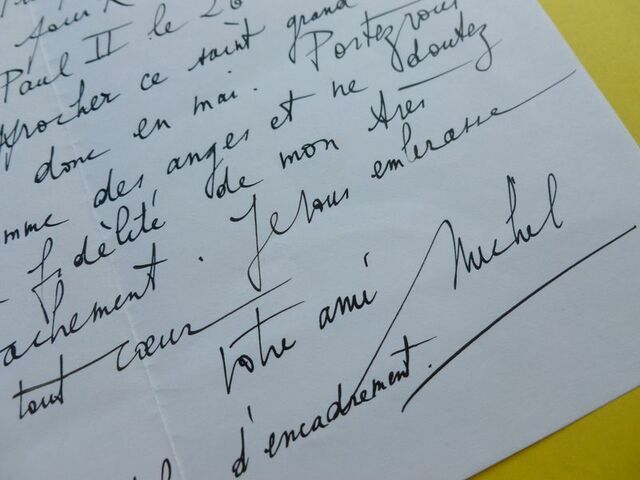 jour
Paul II le 26
procher ce saint grand
donc en mai. Portez vous
mme des anges et ne doutez
fidélité de mon très
achement. Je vous embrasse
tout cœur
Votre ami Michel
d'encadrement.